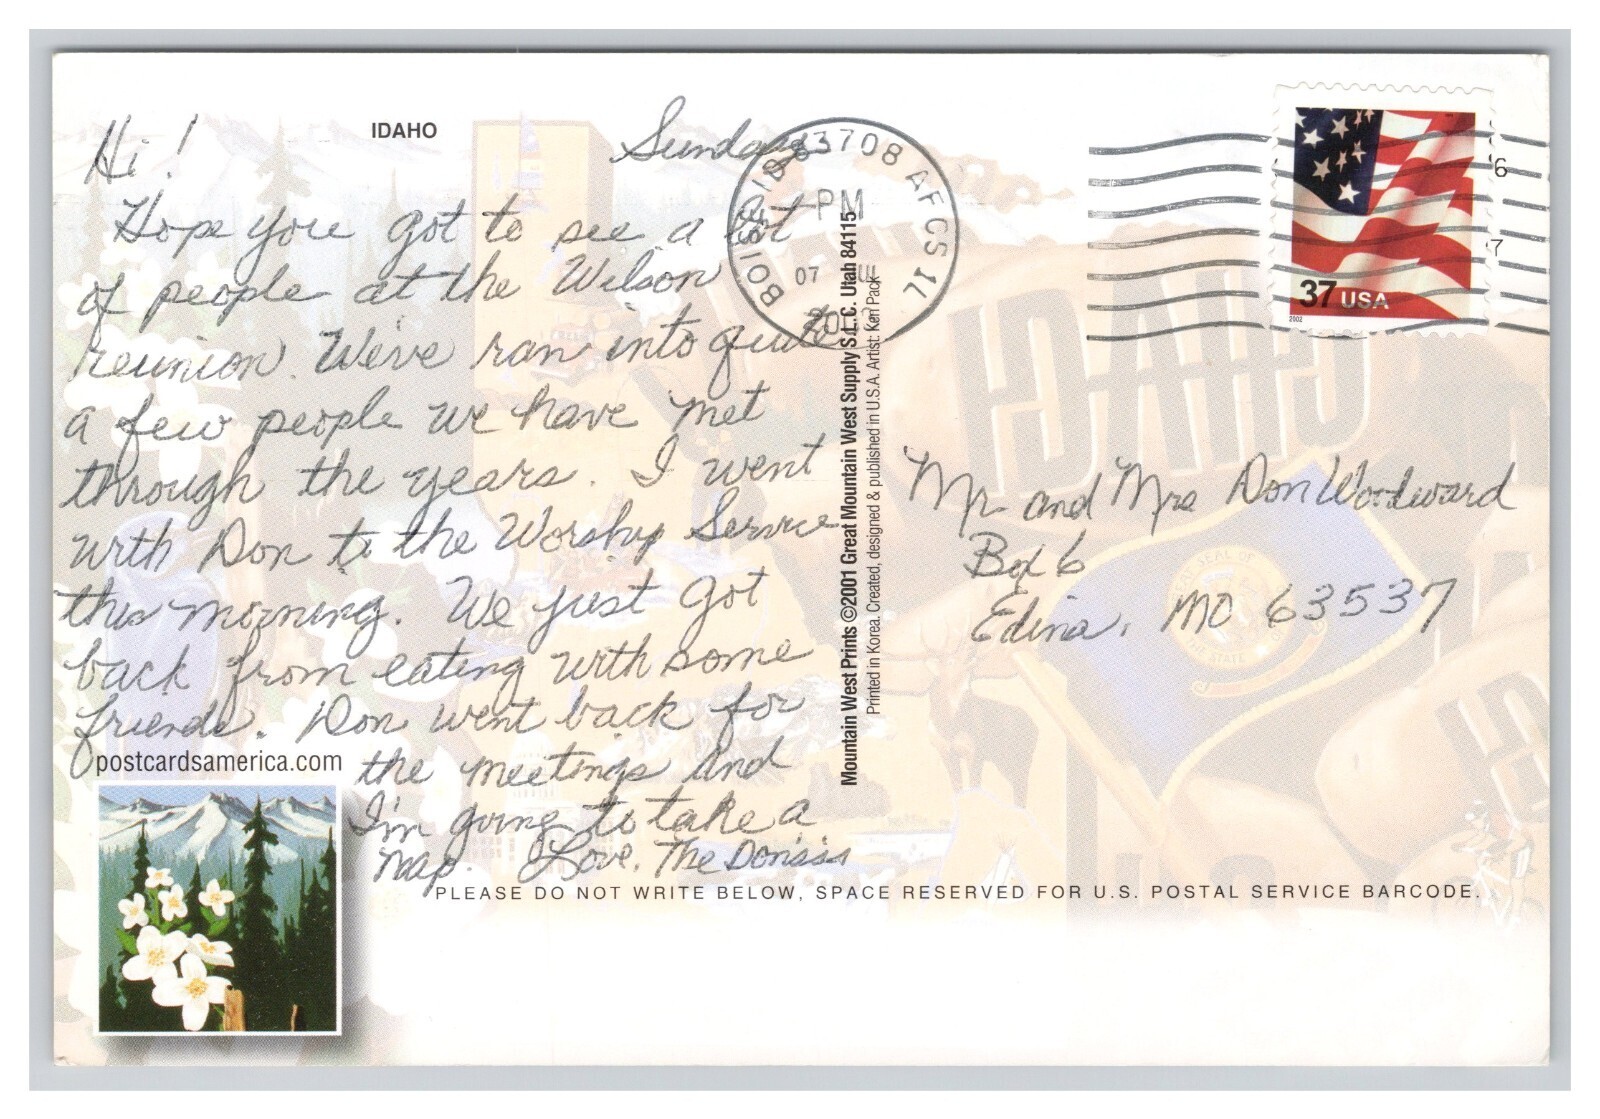 IDAHO
Sunday
Hi!
Hope you got to see a lot
of people at the Wilson
reunion. We've ran into quite
a few people we have met
through the years. I went
with Don to the Worship Service
this morning. We just got
back from eating with some
friends. Don went back for
the meetings and
I'm going to take a
nap. Love, The
postcardsamerica.com
BOISE ID 83708 AFCS 1L
PM
07
Mountain West Prints ©2001 Great Mountain West Supply S.L.C. Utah 84115
Printed in Korea. Created, designed & published in U.S.A. Artist: Ken Pack
37 USA
2002
6
7
Mr and Mrs Don Woodward
Box 6
Edina, MO 63537
IDAHO
SEAL OF
THE STATE
PLEASE DO NOT WRITE BELOW, SPACE RESERVED FOR U.S. POSTAL SERVICE BARCODE.